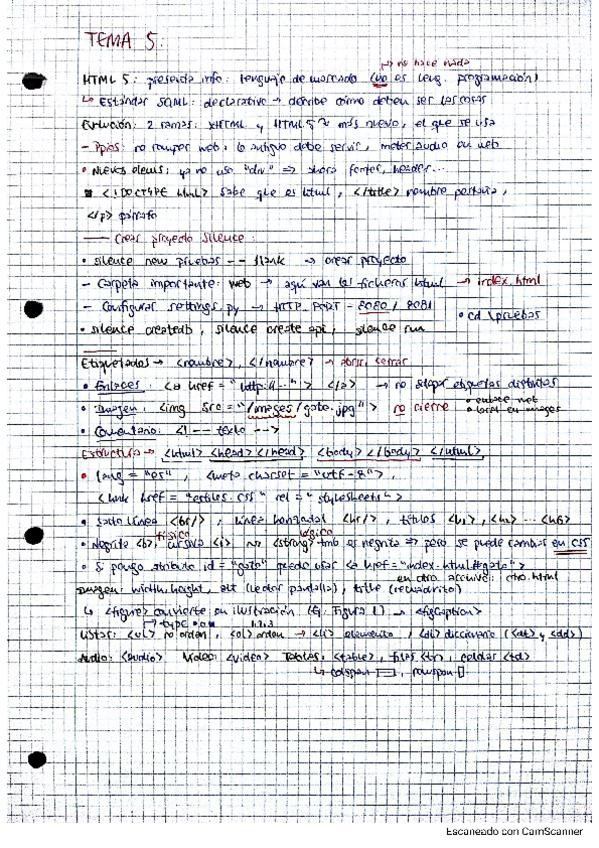 TEMA 5.
→ no hace nada
HTML 5: presenta info. lenguaje de marcado (no es leng. programación)
↳ Estándar SGML: declarativo → describe cómo deben ser las cosas
Evolución: 2 ramas: XHTML y HTML5 → más nuevo, el que se usa
- Ppios: no romper web: lo antiguo debe servir, meter audio en web
• Nuevos elems: ya no uso "div" => ahora footer, header...
<!DOCTYPE html> sabe que es html, </title> nombre pestaña,
</p> párrafo
— Crear proyecto silence:
• silence new pruebas -- blank → crear proyecto
- Carpeta importante: web → aquí van los ficheros html → index.html
- Configurar settings.py → HTTP_PORT - 8080 / 8081
• cd \pruebas
• silence createdb, silence create api, silence run
Etiquetados → <nombre>, </nombre> → abrir, cerrar
• Enlaces: <a href = "http://..."> </a> → no solapar etiquetas distintas
• Imagen: <img src = "/images/gato.jpg"> no cierre
• enlace web
• local en images
• Comentario: <!-- texto -->
Estructura → <html> <head> </head> <body> </body> </html>
• lang = "es", <meta charset = "utf-8">,
<link href = "estilos.css" rel = "stylesheets">
• Salto línea <br/>, línea horizontal <hr/>, títulos <h1>, <h2> ... <h6>
físico lógico
• Negrita <b>, cursiva <i> <strong> tmb es negrita => pero se puede cambiar en CSS
• Si pongo atributo id = "gato" puedo usar <a href="index.html#gato">
en otro archivo: otro.html
Imagen: width, height, alt (lector pantalla), title (recuadrito)
↳ <figure> convierte en ilustración (Ej: Figura 1.) → <figcaption>
→ type 1,2,3
Listas: <ul> no orden, <ol> orden → <li> elemento, <dl> diccionario (<dt> y <dd>)
Audio: <audio> Video: <video> Tablas: <table>, filas <tr>, celdas <td>
↳ colspan, rowspan
Escaneado con CamScanner